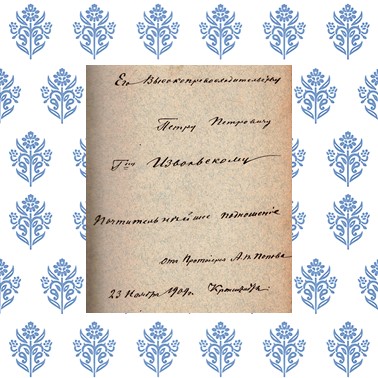 Его Высокопревосходительству
Петру Петровичу
Г-ну Извольскому
Почтительнейшее подношение
отъ Протоіерея А. П. Попова
23 Ноября 1909г.